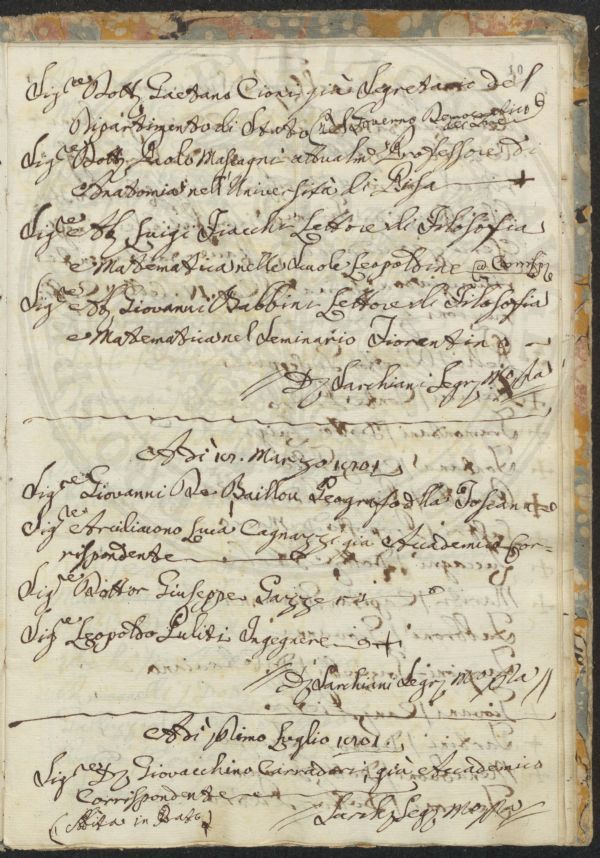 10
Sig.re Dott. Gaetano Cioni già Segretario del
Dipartimento di Stato nel Governo Democratico
Sig.re Dott. Paolo Mascagni attualm.e Professore di
Anatomia nell'Università di Pisa
Sig.re Ab. Luigi Fiacchi Lettore di Filosofia
e Matematica nelle Scuole Leopoldine
Sig.re Ab. Giovanni Babbini Lettore di Filosofia
e Matematica nel Seminario Fiorentino
Sarchiani Segr.
Adì Marzo 1801
Sig.re Giovanni De Baillou Geografo della Toscana
Sig.re Arcidiacono Luca Cagnazzi già Accademico Cor-
rispondente
Sig.re Dottor Giuseppe Gazzeri
Sig.re Leopoldo Puliti Ingegnere
Sarchiani Segr.
Adì Primo Luglio 1801
Sig.re Giovacchino Carradori, già Accademico
Corrispondente
(Abita in Prato)
Sarch. Seg.